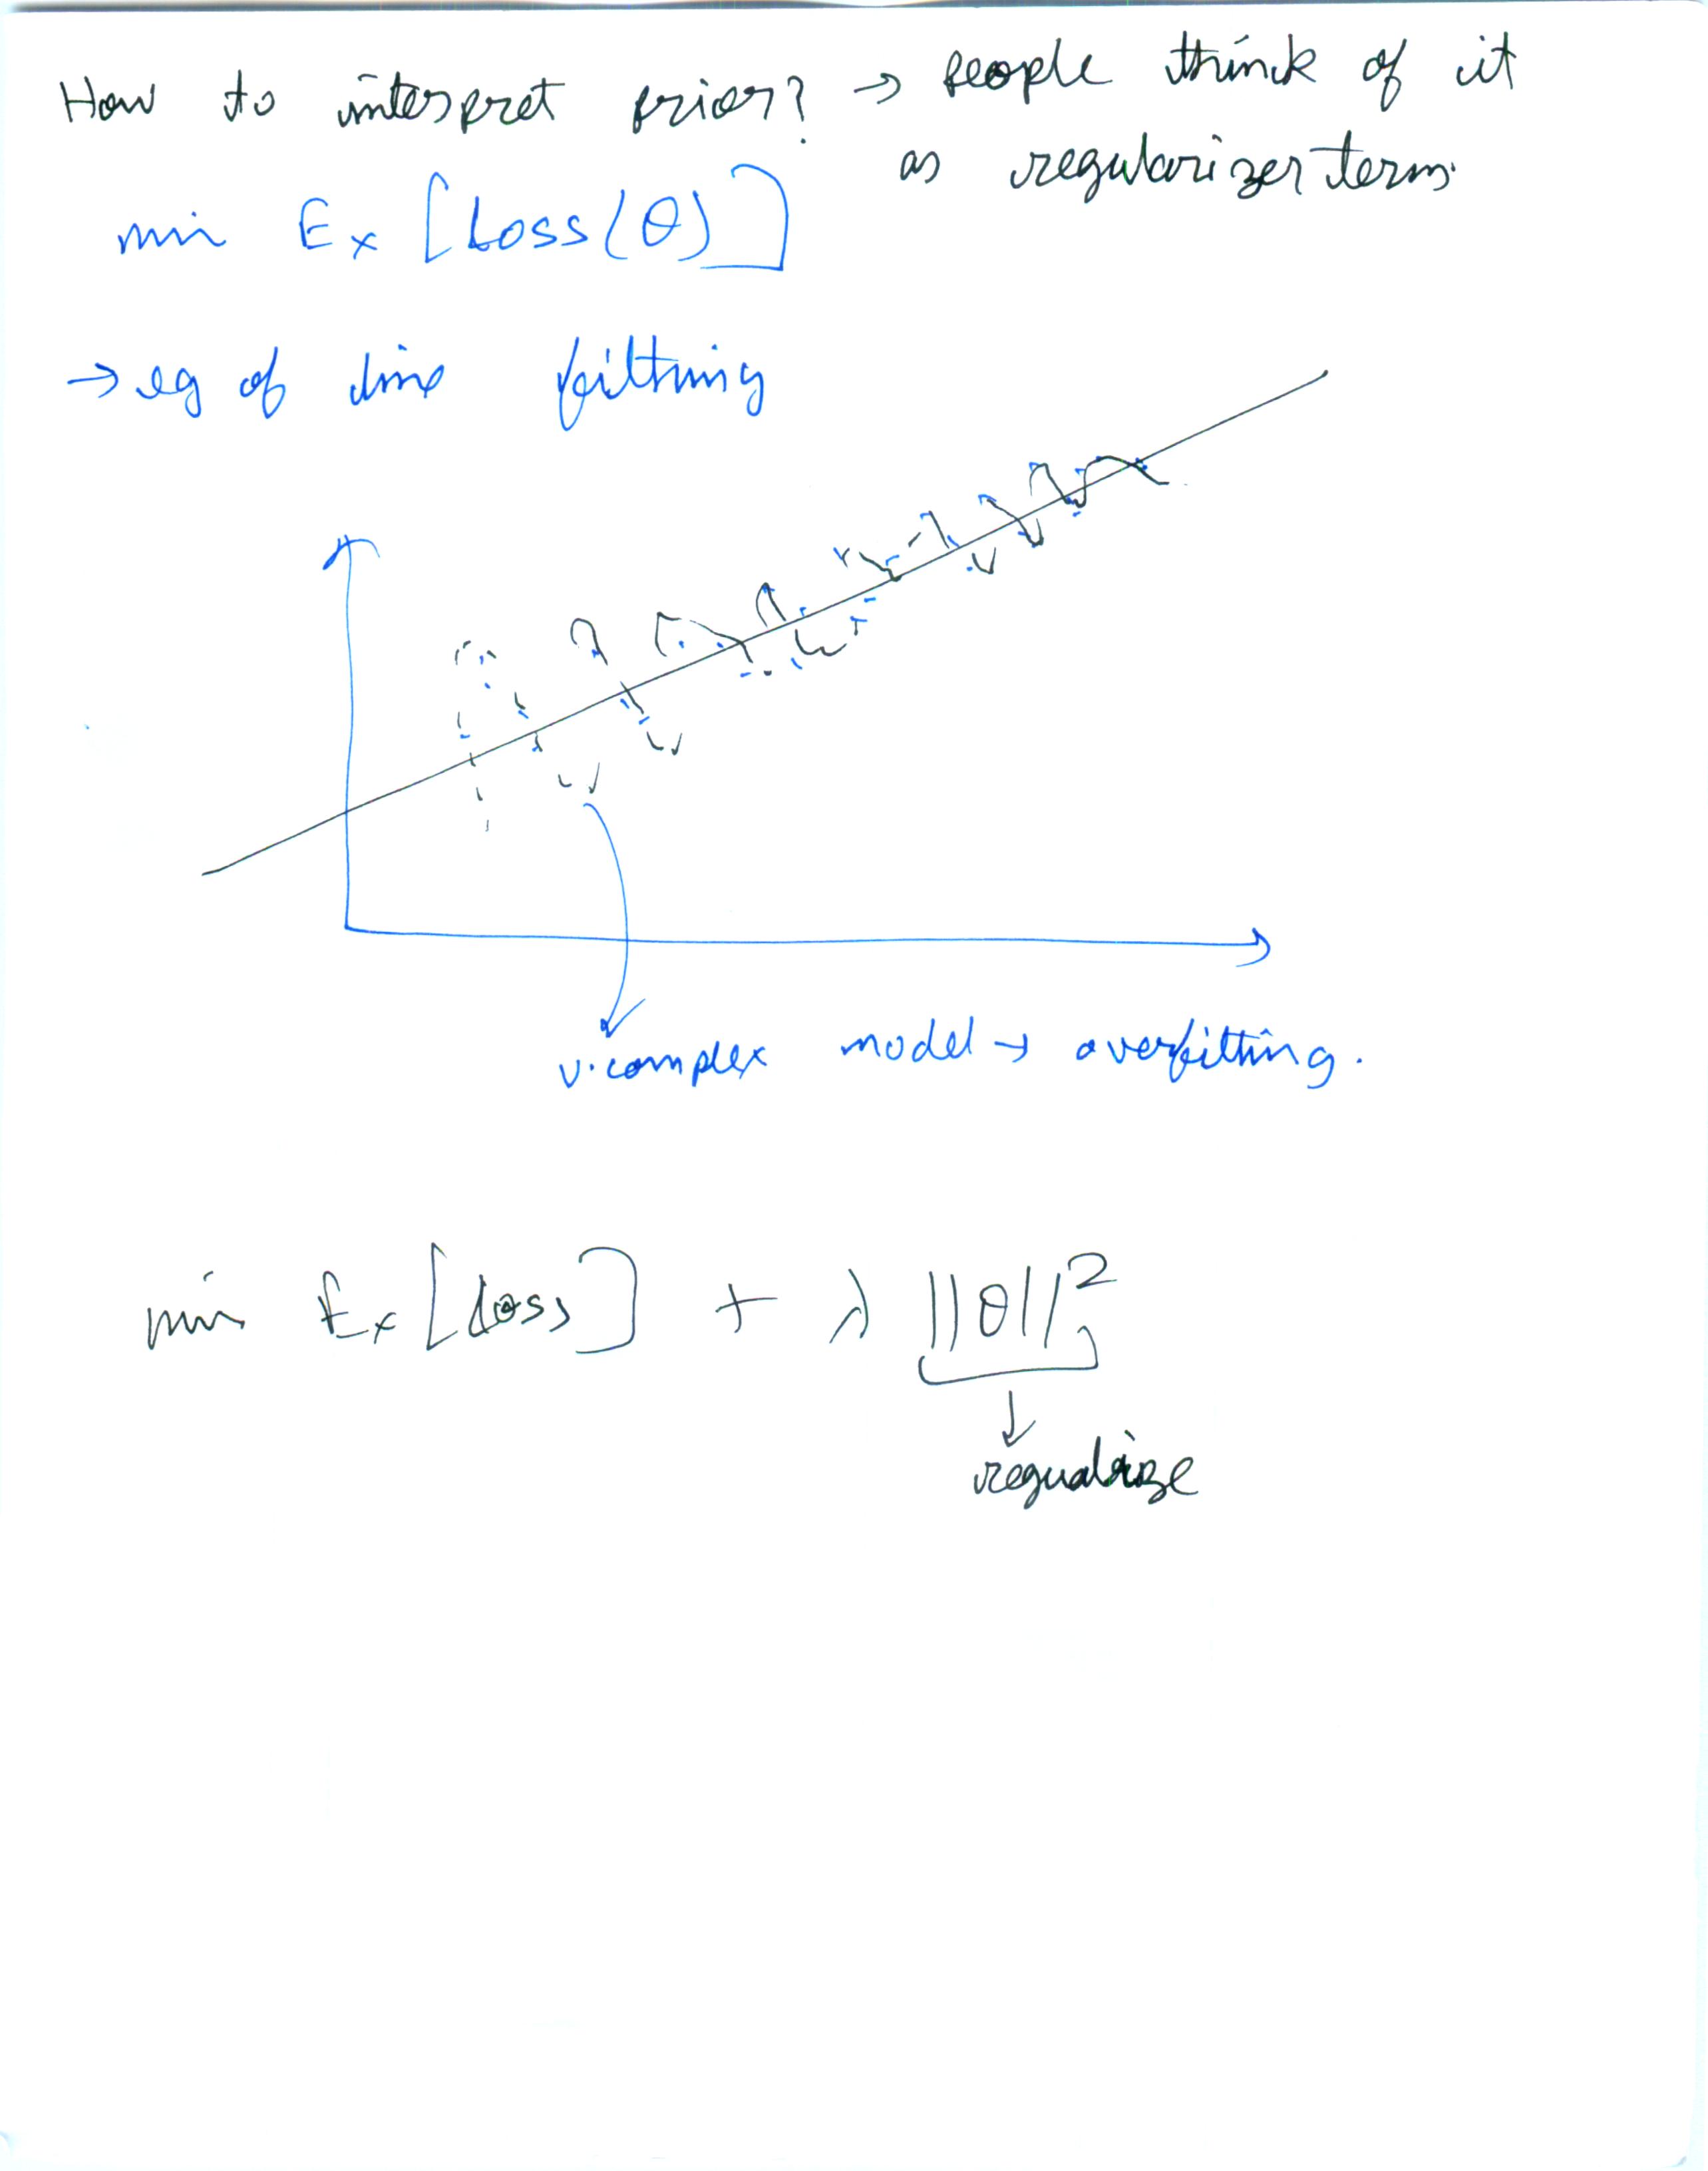 How to interpret prior? → people think of it
as regularizer term.
min Ex [Loss(θ)]
→ eg of line fitting
v. complex model → overfitting.
min Ex [loss] + λ ||θ||²
↓
regualrize